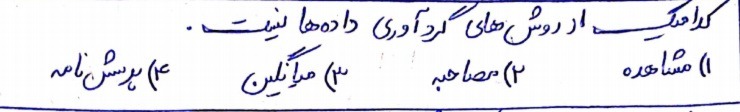 کدامیک از روش‌های گردآوری داده‌ها نیست.
۱) مشاهده ۲) مصاحبه ۳) میانگین ۴) پرسش‌نامه